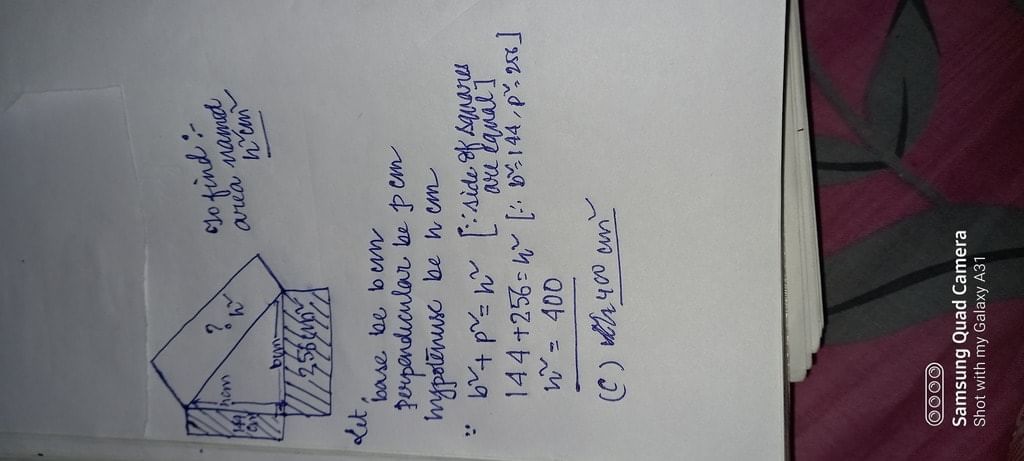 To find :-
area named
h² cm²
?
h²
144
cm²
pcm
bcm
256cm²
Let,
base be b cm
perpendicular be p cm
hypotenuse be h cm
∵ b² + p² = h² [∵ side of squares
are equal]
144 + 256 = h² [∵ b² = 144, p² = 256]
h² = 400
(C) 400 cm²
Samsung Quad Camera
Shot with my Galaxy A31